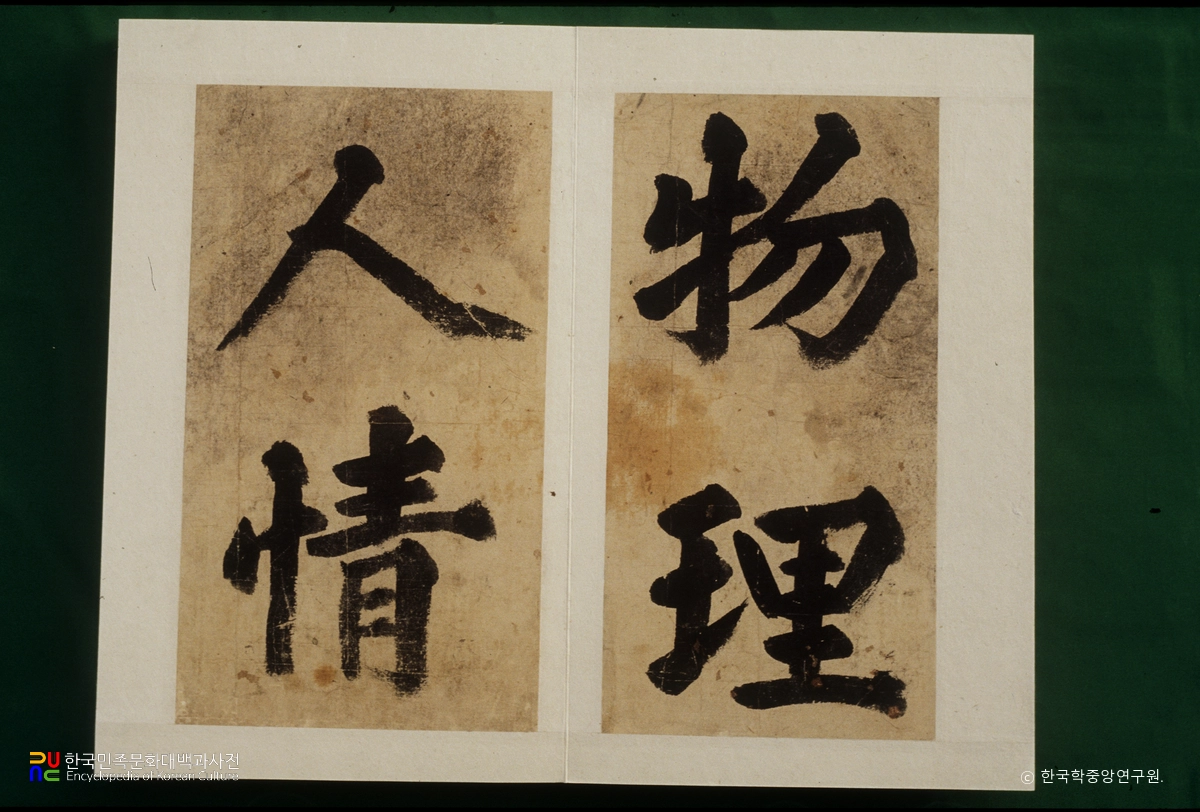 物理
人情
한국민족문화대백과사전
Encyclopedia of Korean Culture
© 한국학중앙연구원.